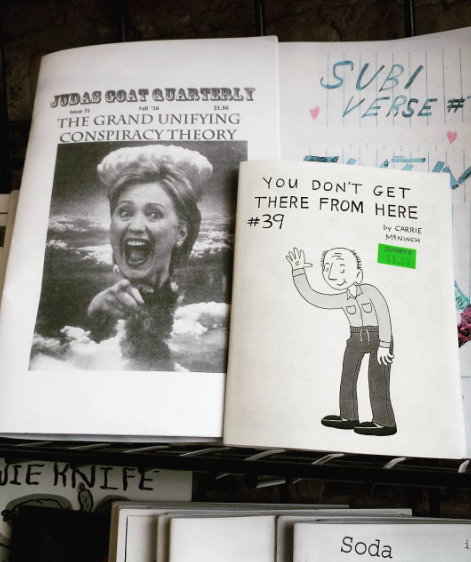 JUDAS GOAT QUARTERLY
Issue 75 Fall '16 $1.50
THE GRAND UNIFYING
CONSPIRACY THEORY
SUBI
VERSE #
YOU DON'T GET
THERE FROM HERE
#39
by CARRIE
McNINCH
QUIMBY'S
KNIFE
Soda